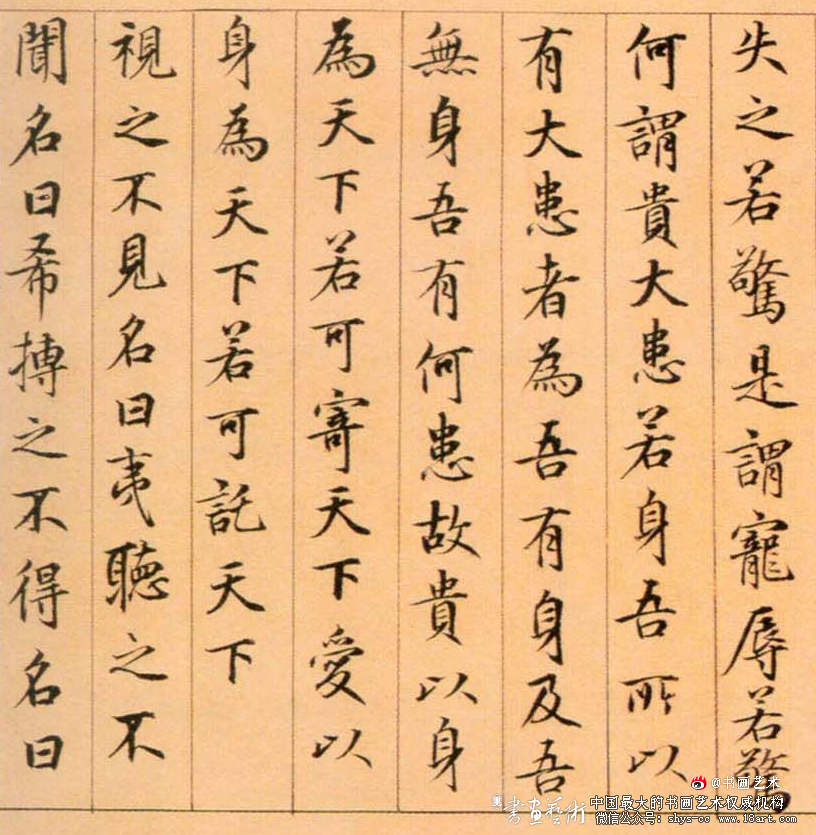 失之若驚是謂寵辱若驚
何謂貴大患若身吾所以
有大患者為吾有身及吾
無身吾有何患故貴以身
為天下若可寄天下愛以
身為天下若可託天下
視之不見名曰夷聽之不
聞名曰希摶之不得名曰
@书画艺术
書画藝術
中国最大的书画艺术权威机构
微信公众号:shys-cc www.18art.com